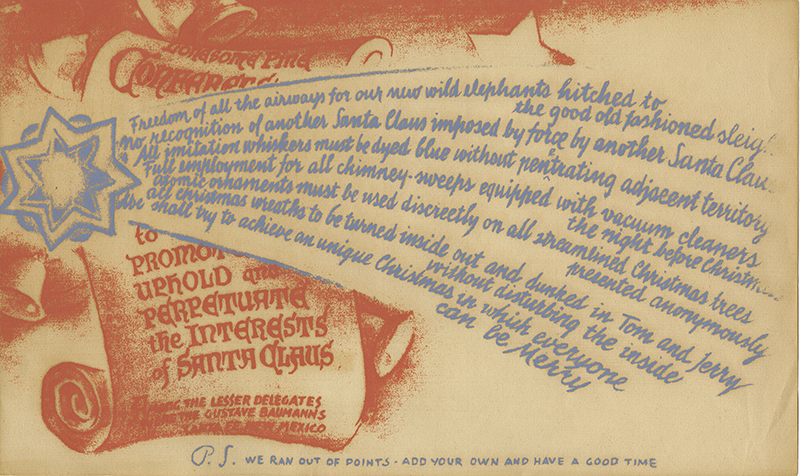 Lonesome Pine
Freedom of all the airways for our new wild elephants hitched to
the good old fashioned sleigh
no recognition of another Santa Claus imposed by force by another Santa Claus
All imitation whiskers must be dyed blue without pentrating adjacent territory
Full employment for all chimney-sweeps equipped with vacuum cleaners
the night before Christmas
Atomic ornaments must be used discreetly on all streamlined Christmas trees
presented anonymously
all christmas wreaths to be turned inside out and dunked in Tom and Jerry
without disturbing the inside
we shall try to achieve an unique Christmas in which everyone
can be Merry
to
PROMOT
UPHOLD and
PERPETUATE
the INTERESTS
of SANTA CLAUS
THE LESSER DELEGATES
THE GUSTAVE BAUMANNS
SANTA FE NEW MEXICO
P.S. WE RAN OUT OF POINTS - ADD YOUR OWN AND HAVE A GOOD TIME